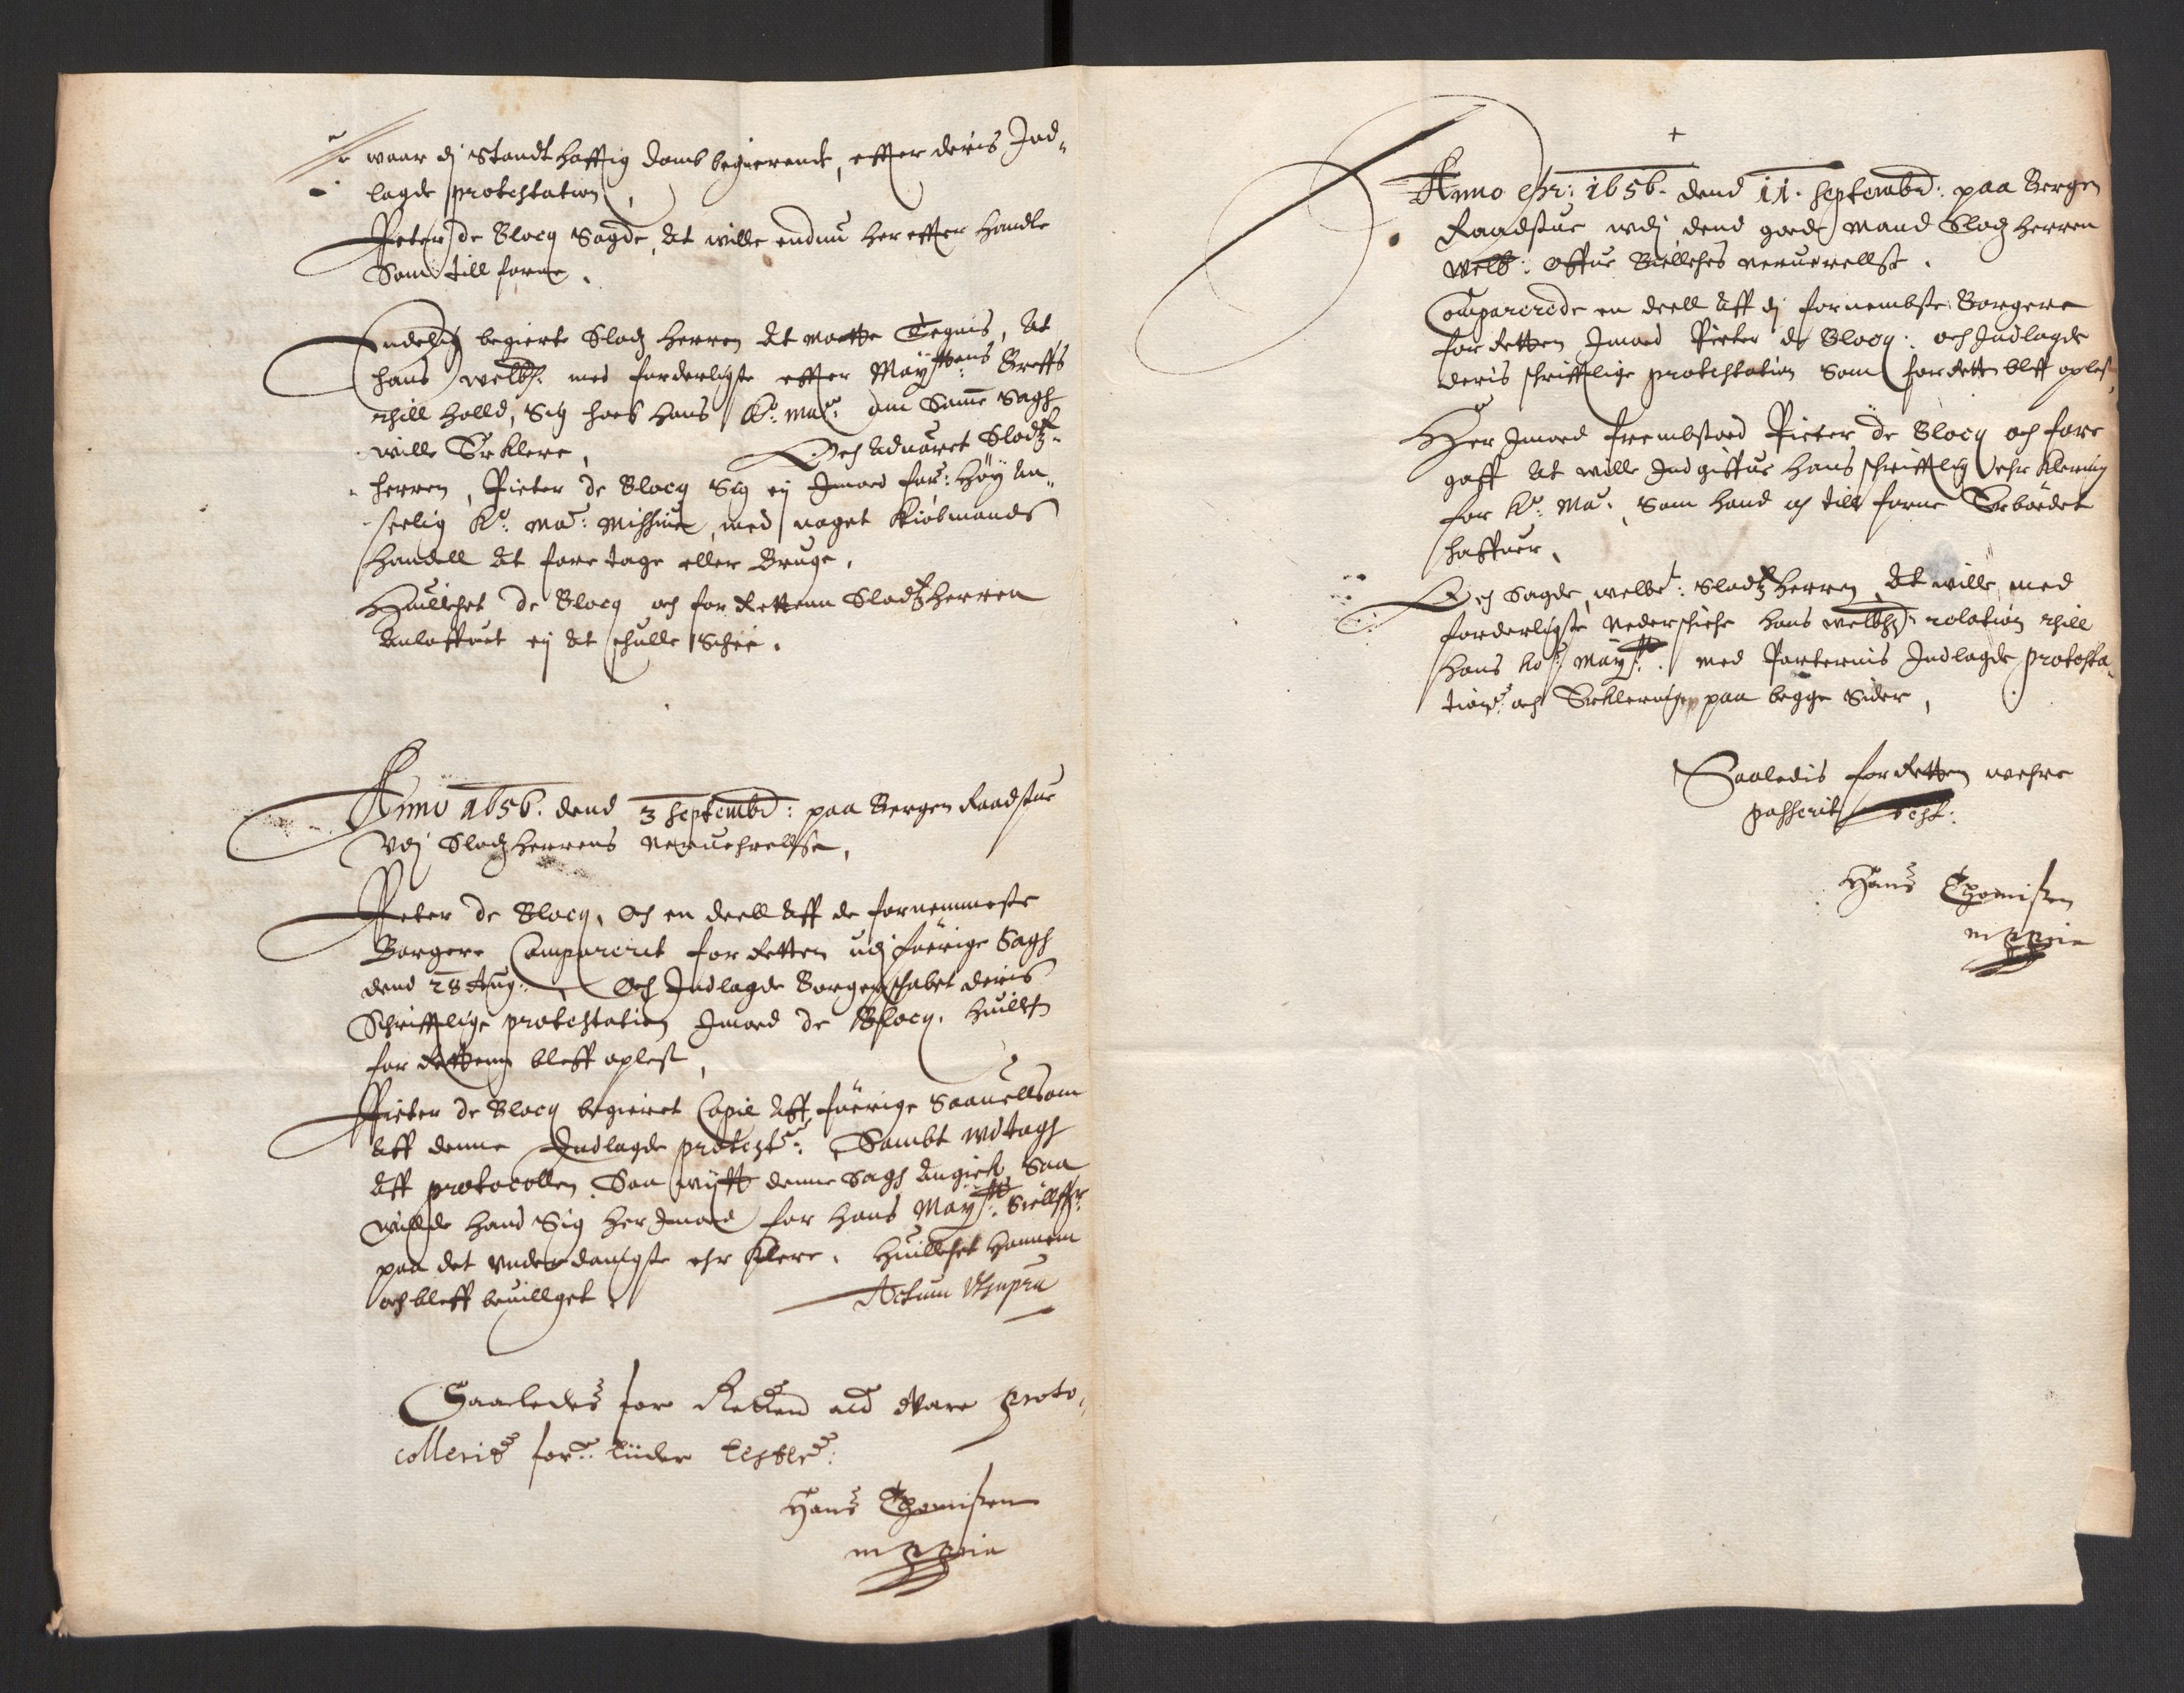 waar dj Standthafftig domb begierende, effter deris Ind-
lagde protestation,
Peter de Blocq Sagde, At wille endnu her effter Handle
Som till forne.
Endelig begierte Slodz Herren At motte Tegnis, At
hans welbh: med forderligste effter Mayttens: Breffs
Holld, Sig hoes Hans K: Ma: om Samme Sagh
wille Erklere, Och Aduaret Slodtz-
herren, Pieter de Blocq Sig ey Imod for: Høy An-
seelig K: Ma: Missiue, med noget Kiøbmands
Handell At fore tage eller Bruge.
Huilchet de Blocq och for Rettenn Slodtz Herren
Anloffuet ey At schulle Schee.
Anno 1656. dend 3 Septembr: paa Bergen Raadstue
Vdj Slodz Herrens neruehrellse,
Peter de Blocq, Och en deell Aff de fornemmeste
Borgere Comparerit for Retten udj förige Sagh
dend 28 Aug: Och Indlagde Borgerschabet deris
Schrifftlige protestation Imod de Blocq. huilchen
for Rettenn bleff oplest,
Pieter de Blocq begieret Copie Aff föerige Saauellsom
Aff denne Indlagde protest: Sambt wdtagh
Aff protocollen. Saa wijtt denne Sagh Angick Saa
willde Hand Sig Her Imod for Hans Maytt: Siellffr
paa det Vnderdanigste ehrklere. Huilchet Hannem
och bleff beuillget. Actum Ut supra
Saaledes for Retten att Vare proto-
collerit for: Liuder Tester:
Hans Thomissen
mppria
Anno Chr: 1656. dend 11. Septembr: paa Bergen
Raadstue wdj dend goede Mand Slodz Herren
Welb: Offue Bielches neruerellse.
Comparerede en deell Aff dj fornembste Borgere
for Retten Imod Pieter de Blocq: och Indlagde
deris schrifftlige protestation Som for Rett bleff oplest,
Her Imod frembstoed Pieter de Blocq och fore
gaff At wille Indgiffue Hans schrifftlig ehrklering
for K: Ma: Som Hand och till forne Erbödet
haffuer.
Och Sagde welbr: Slodtz Herren At wille med
forderligste Nederschiche Hans welbh: relation thill
Hans Ko: Maytt: med Parternis Indlagde protesta-
tion: och Erkleringer paa begge Sider,
Saaledis for Retten wehre
passerit test:
Hans Thomissen
mppria